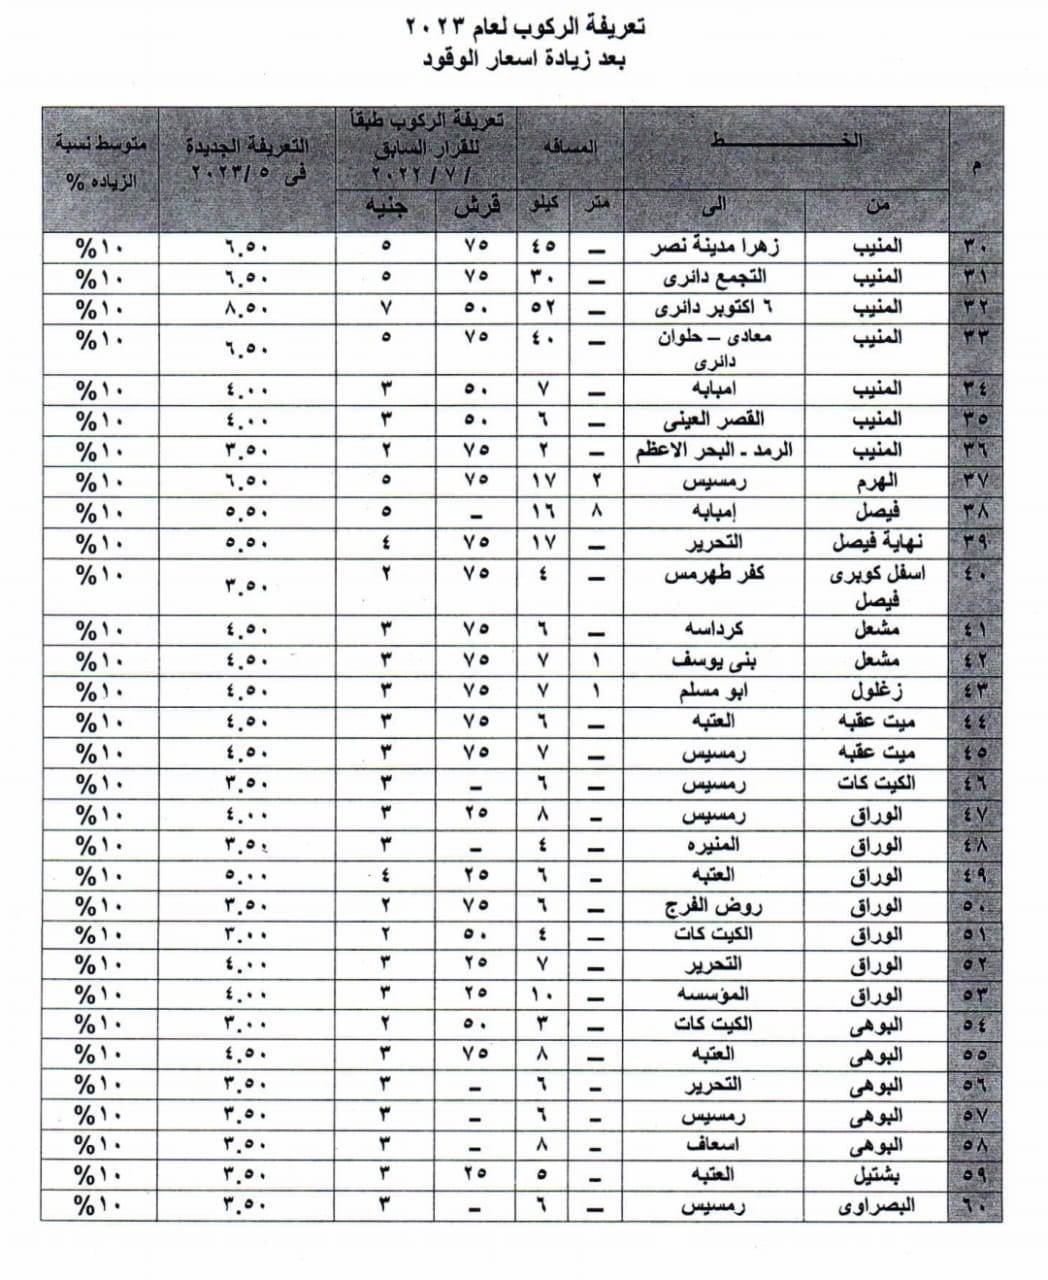 تعريفة الركوب لعام ٢٠٢٣
بعد زيادة اسعار الوقود
م الخــــط المسافه تعريفة الركوب طبقاً للقرار السابق /٧/ ٢٠٢٢ التعريفة الجديدة فى ٥ /٢٠٢٣ متوسط نسبة الزياده %
من الى متر كيلو قرش جنيه
٣٠ المنيب زهرا مدينة نصر – ٤٥ ٧٥ ٥ ٦.٥٠ ١٠%
٣١ المنيب التجمع دائرى – ٣٠ ٧٥ ٥ ٦.٥٠ ١٠%
٣٢ المنيب ٦ اكتوبر دائرى – ٥٢ ٥٠ ٧ ٨.٥٠ ١٠%
٣٣ المنيب معادى – حلوان دائرى – ٤٠ ٧٥ ٥ ٦.٥٠ ١٠%
٣٤ المنيب امبابه – ٧ ٥٠ ٣ ٤.٠٠ ١٠%
٣٥ المنيب القصر العينى – ٦ ٥٠ ٣ ٤.٠٠ ١٠%
٣٦ المنيب الرمد - البحر الاعظم – ٢ ٧٥ ٢ ٣.٥٠ ١٠%
٣٧ الهرم رمسيس ٢ ١٧ ٧٥ ٥ ٦.٥٠ ١٠%
٣٨ فيصل إمبابه ٨ ١٦ – ٥ ٥.٥٠ ١٠%
٣٩ نهاية فيصل التحرير – ١٧ ٧٥ ٤ ٥.٥٠ ١٠%
٤٠ اسفل كوبرى فيصل كفر طهرمس – ٤ ٧٥ ٢ ٣.٥٠ ١٠%
٤١ مشعل كرداسه – ٦ ٧٥ ٣ ٤.٥٠ ١٠%
٤٢ مشعل بنى يوسف ١ ٧ ٧٥ ٣ ٤.٥٠ ١٠%
٤٣ زغلول ابو مسلم ١ ٧ ٧٥ ٣ ٤.٥٠ ١٠%
٤٤ ميت عقبه العتبه – ٦ ٧٥ ٣ ٤.٥٠ ١٠%
٤٥ ميت عقبه رمسيس – ٧ ٧٥ ٣ ٤.٥٠ ١٠%
٤٦ الكيت كات رمسيس – ٦ – ٣ ٣.٥٠ ١٠%
٤٧ الوراق رمسيس – ٨ ٢٥ ٣ ٤.٠٠ ١٠%
٤٨ الوراق المنيره – ٤ – ٣ ٣.٥٠ ١٠%
٤٩ الوراق العتبه – ٦ ٢٥ ٤ ٥.٠٠ ١٠%
٥٠ الوراق روض الفرج – ٦ ٧٥ ٢ ٣.٥٠ ١٠%
٥١ الوراق الكيت كات – ٤ ٥٠ ٢ ٣.٠٠ ١٠%
٥٢ الوراق التحرير – ٧ ٢٥ ٣ ٤.٠٠ ١٠%
٥٣ الوراق المؤسسه – ١٠ ٢٥ ٣ ٤.٠٠ ١٠%
٥٤ البوهى الكيت كات – ٣ ٥٠ ٢ ٣.٠٠ ١٠%
٥٥ البوهى العتبه – ٨ ٧٥ ٣ ٤.٥٠ ١٠%
٥٦ البوهى التحرير – ٦ – ٣ ٣.٥٠ ١٠%
٥٧ البوهى رمسيس – ٦ – ٣ ٣.٥٠ ١٠%
٥٨ البوهى اسعاف – ٨ – ٣ ٣.٥٠ ١٠%
٥٩ بشتيل العتبه – ٥ ٢٥ ٣ ٣.٥٠ ١٠%
٦٠ البصراوى رمسيس – ٦ – ٣ ٣.٥٠ ١٠%